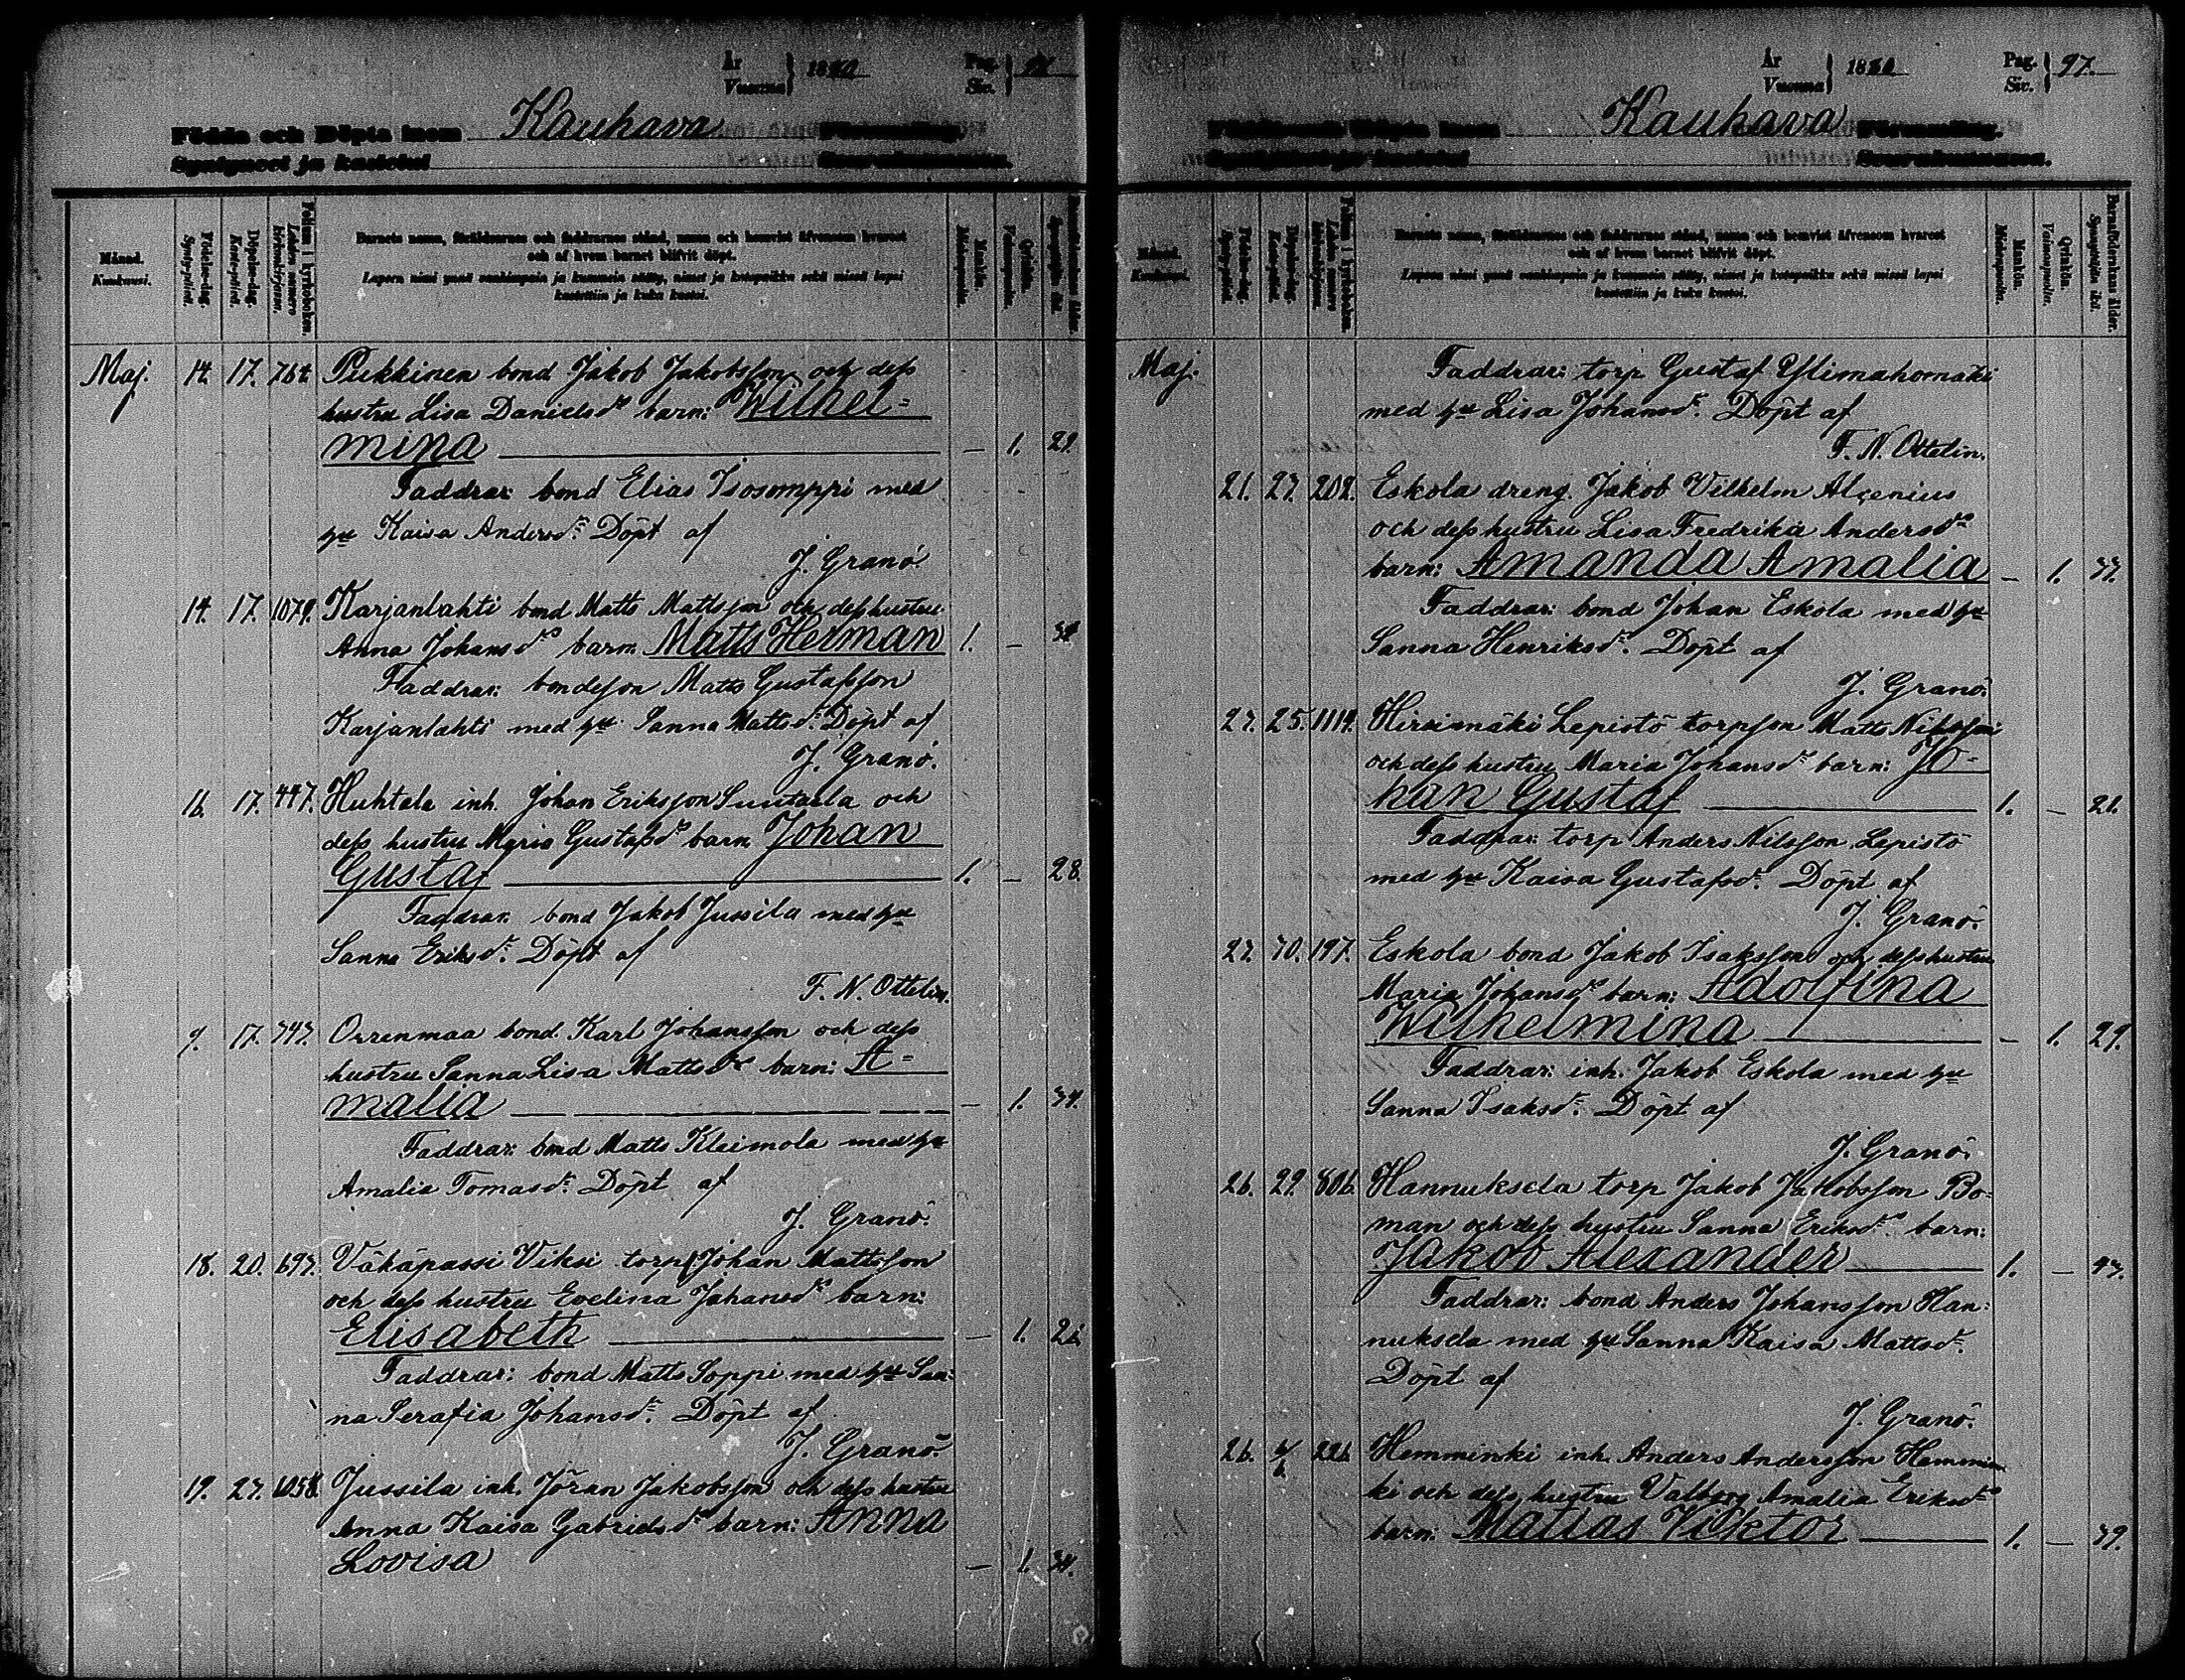 År
Vuonna } 1880
Pag.
Siv. } 96
Födda och Döpta inom Kauhava Församling.
Syntyneet ja kastetut Seurakunnassa.
Månad.
Kuukausi.
Födelse-dag.
Synty-päivä.
Döpelse-dag.
Kaste-päivä.
Folium i kyrkoboken.
Lehden numero kirkonkirjassa.
Barnets namn, föräldrarnes och faddrarnes stånd, namn och hemvist äfvensom hvarest
och af hvem barnet blifvit döpt.
Lapsen nimi ynnä vanhempain ja kummein sääty, nimet ja kotopaikka sekä missä lapsi
kastettiin ja kuka kastoi.
Mankön.
Miehenpuolia.
Qvinkön.
Vaimonpuolia.
Barnaföderskans ålder.
Synnyttäjän ikä.
Maj. 14. 17. 764. Pukkinen bond Jakob Jakobsson och dess
hustru Lisa Danielsdr barn: Wilhel=
mina — 1. 29.
Faddrar: bond Elias Isosomppi med
hu Kaisa Andersdr. Döpt af
J. Granö.
14. 17. 1079. Karjanlahti bond Matts Mattsson och dess hustru
Anna Johansdr barn: Matts Herman 1. — 34.
Faddrar: bondeson Matts Gustafsson
Karjanlahti med hu Sanna Mattsdr. Döpt af
J. Granö.
16. 17. 447. Huhtala inh. Johan Eriksson Suutarla och
dess hustru Maria Gustafsdr barn: Johan
Gustaf 1. — 28.
Faddrar: bond Jakob Jussila med hu
Sanna Eriksdr. Döpt af
F. N. Ottelin.
9. 17. 343. Orrenmaa bond. Karl Johansson och dess
hustru Sanna Lisa Mattsdr barn: A=
malia — 1. 34.
Faddrar: bond Matts Kleimola med hu
Amalia Tomasdr. Döpt af
J. Granö.
18. 20. 693. Vähäpassi Viksi torp. Johan Mattsson
och dess hustru Evelina Johansdr barn:
Elisabeth — 1. 26.
Faddrar: bond Matts Soppi med hu San=
na Serafia Johansdr. Döpt af
J. Granö.
19. 23. 1058. Jussila inh. Jöran Jakobsson och dess hustru
Anna Kaisa Gabrielsdr barn: Anna
Lovisa — 1. 34.
År
Vuonna } 1880
Pag.
Siv. } 97.
Födda och Döpta inom Kauhava Församling.
Syntyneet ja kastetut Seurakunnassa.
Månad.
Kuukausi.
Födelse-dag.
Synty-päivä.
Döpelse-dag.
Kaste-päivä.
Folium i kyrkoboken.
Lehden numero kirkonkirjassa.
Barnets namn, föräldrarnes och faddrarnes stånd, namn och hemvist äfvensom hvarest
och af hvem barnet blifvit döpt.
Lapsen nimi ynnä vanhempain ja kummein sääty, nimet ja kotopaikka sekä missä lapsi
kastettiin ja kuka kastoi.
Mankön.
Miehenpuolia.
Qvinkön.
Vaimonpuolia.
Barnaföderskans ålder.
Synnyttäjän ikä.
Maj. Faddrar: torp Gustaf Ylimahomäki
med hu Lisa Johansdr. Döpt af
F. N. Ottelin.
21. 23. 202. Eskola dreng. Jakob Vilhelm Alcenius
och dess hustru Lisa Fredrika Andersdr
barn: Amanda Amalia — 1. 33.
Faddrar: bond Johan Eskola med hu
Sanna Henriksdr. Döpt af
J. Granö.
23. 25. 1114. Hirsimäki Lepistö torpson Matts Nilsson
och dess hustru Maria Johansdr barn: Jo=
han Gustaf 1. — 21.
Faddrar: torp Anders Nilsson Lepistö
med hu Kaisa Gustafsdr. Döpt af
J. Granö.
23. 30. 197. Eskola bond Jakob Isaksson och dess hustru
Maria Johansdr barn: Adolfina
Wilhelmina — 1. 29.
Faddrar: inh. Jakob Eskola med hu
Sanna Isaksdr. Döpt af
J. Granö.
26. 29. 806. Hannuksela torp Jakob Jakobsson Bo=
man och dess hustru Sanna Eriksdr barn:
Jakob Alexander 1. — 43.
Faddrar: bond Anders Johansson Han=
nuksela med hu Sanna Kaisa Mattsdr.
Döpt af
J. Granö.
26. 226. Hemminki inh. Anders Andersson Hemmin
ki och dess hustru Valborg Amalia Eriksdr
barn: Matias Viktor 1. — 39.